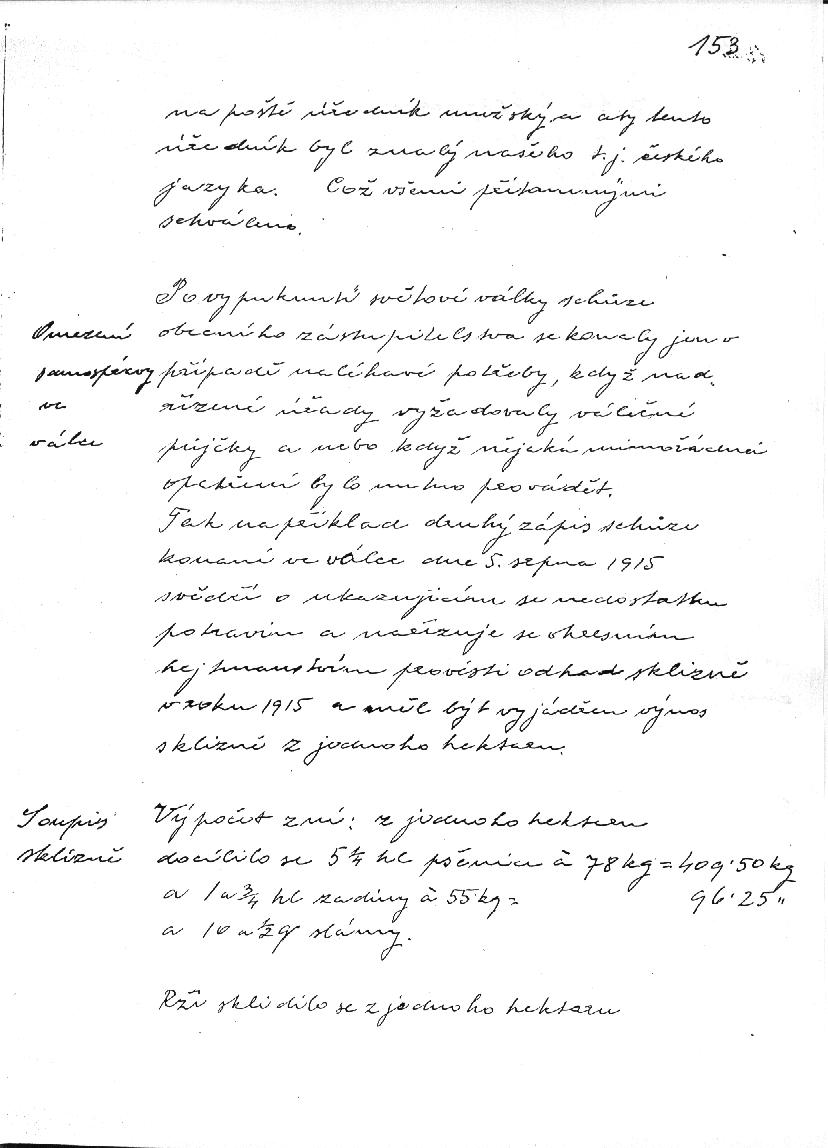 153
na poště úředník mužský a aby tento
úředník byl znalý našeho t.j. českého
jazyka. Což všemi přítomnými
schváleno.
Po vypuknutí světové války schůze
Omezení
obecního zástupitelstva se konaly jen v
samosprávy
případě naléhavé potřeby, když nad.
ve
řízené úřady vyžadovaly válečné
válce
půjčky a nebo když nějaká mimořádná
opatření bylo nutno provádět.
Tak na příklad druhý zápis schůze
konané ve válce dne 5. srpna 1915
svědčí o ukazujícím se nedostatku
potravin a nařizuje se okresním
hejtmanstvím provésti odhad sklizně
v roku 1915 a měl být vyjádřen výnos
sklizně z jednoho hektaru.
Soupis
Výpočet zní: z jednoho hektaru
sklizně
docílilo se 5 1/4 hl pšenice à 78 kg = 409·50 kg
a 1 a 3/4 hl zadiny à 55 kg = 96·25 "
a 10 a 1/2 q slámy.
Rži sklidilo se z jednoho hektaru